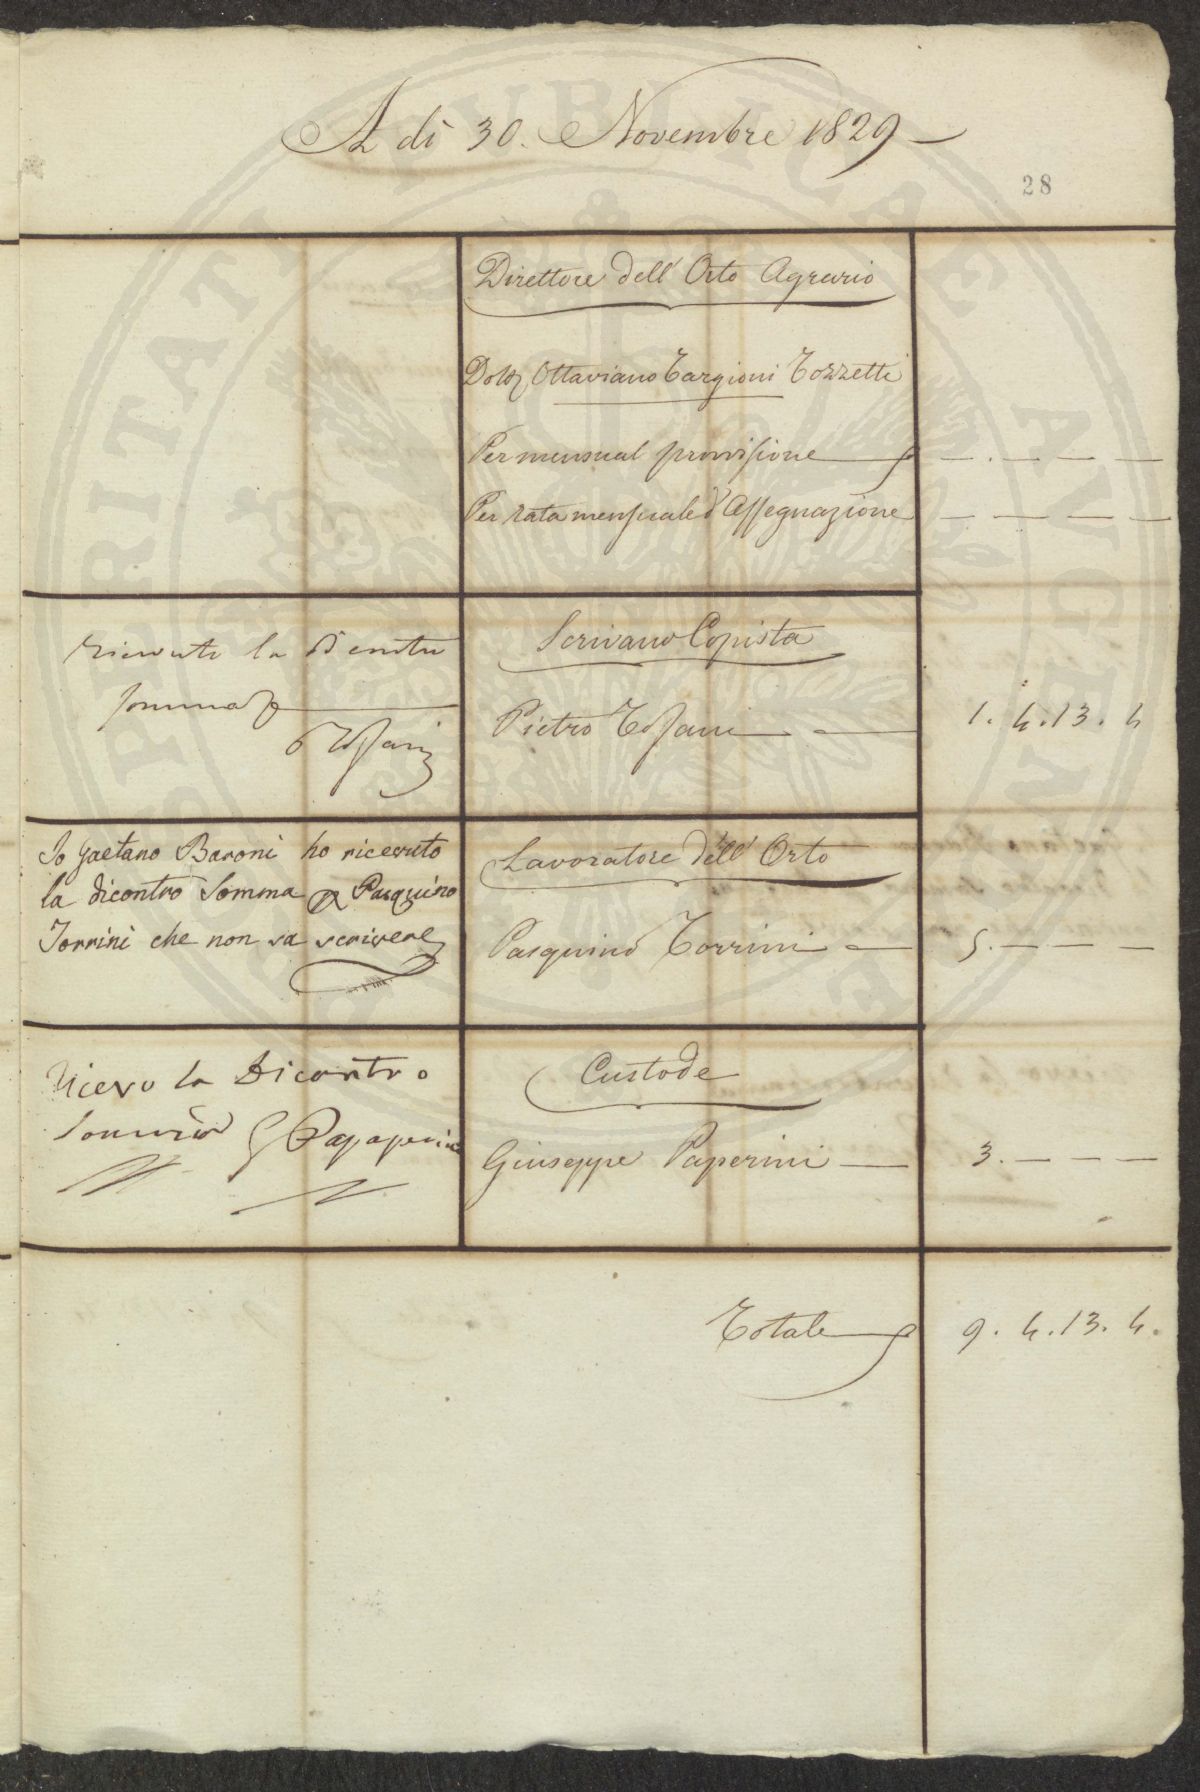 A dì 30. Novembre 1829
28
Direttore dell' Orto Agrario
Dott. Ottaviano Targioni Tozzetti
Per mensual provisione
Per rata mensuale d'Assegnazione
ricevuto la di contro
somma
P Tofani
Scrivano Copista
Pietro Tofani 1. 4. 13. 4
Io Gaetano Baroni ho ricevuto
la dicontro Somma p Pasquino
Torrini che non sa scrivere
Lavoratore dell' Orto
Pasquino Torrini 5. — — —
Ricevo la Dicontro
Somma G
Custode
Giuseppe Paperini 3. — — —
Totale 9. 4. 13. 4.